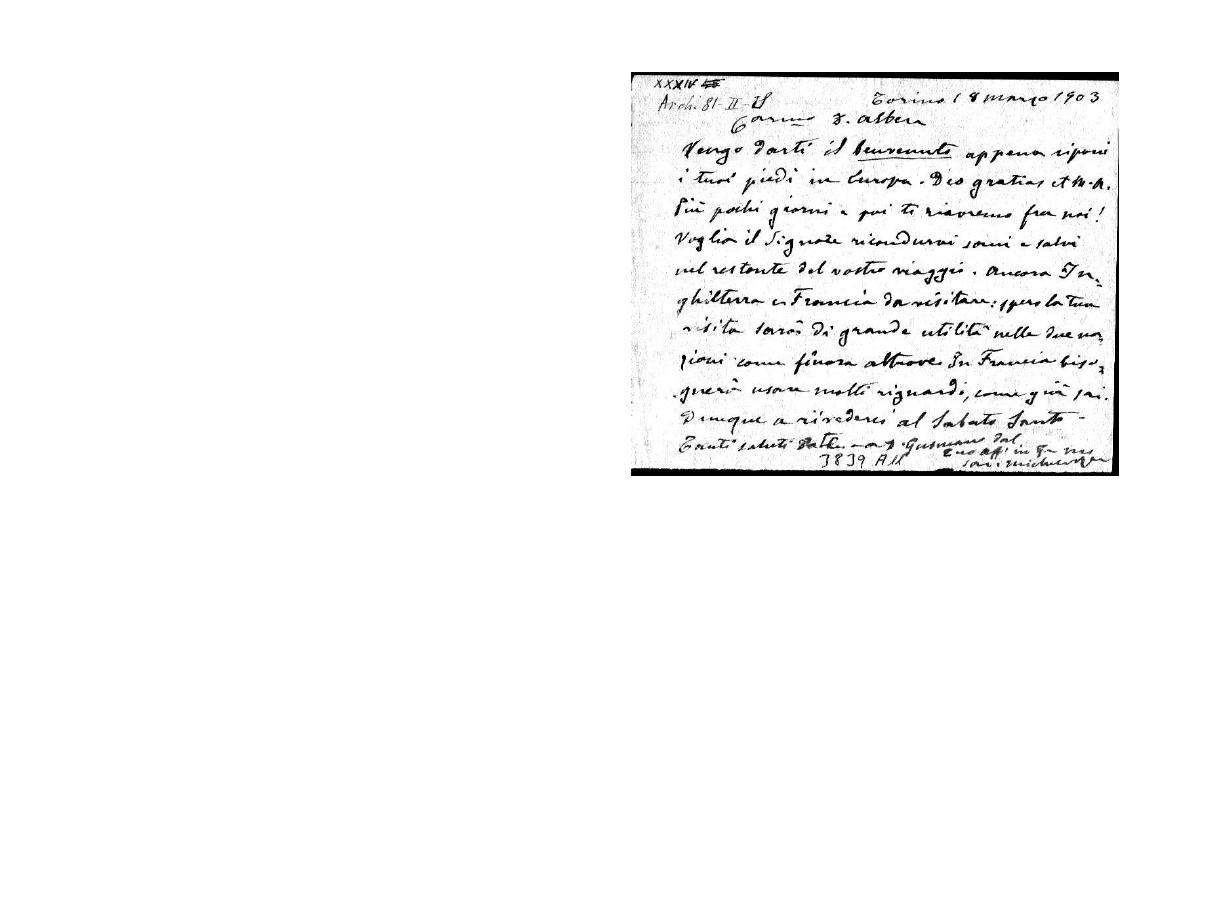 XXXIV
Arch. 81-II-IS
Torino 18 marzo 1903
Carmo D. Albera
Vengo darti il benvenuto appena riponi
i tuoi piedi in Europa. Deo gratias et M.A.
Più pochi giorni e poi ti riavremo fra noi!
Voglia il Signore ricondurvi sani e salvi
nel restante del vostro viaggio. Ancora In-
ghilterra e Francia da visitare: spero la tua
visita sarà di grande utilità nelle due na-
zioni come finora altrove. In Francia biso-
gnerà usare molti riguardi, come già sai.
Dunque a rivederci al Sabato Santo -
Tanti saluti a D. Gusmano dal
tuo aff. in G. M.
Sac. Michele Rua
3839 All